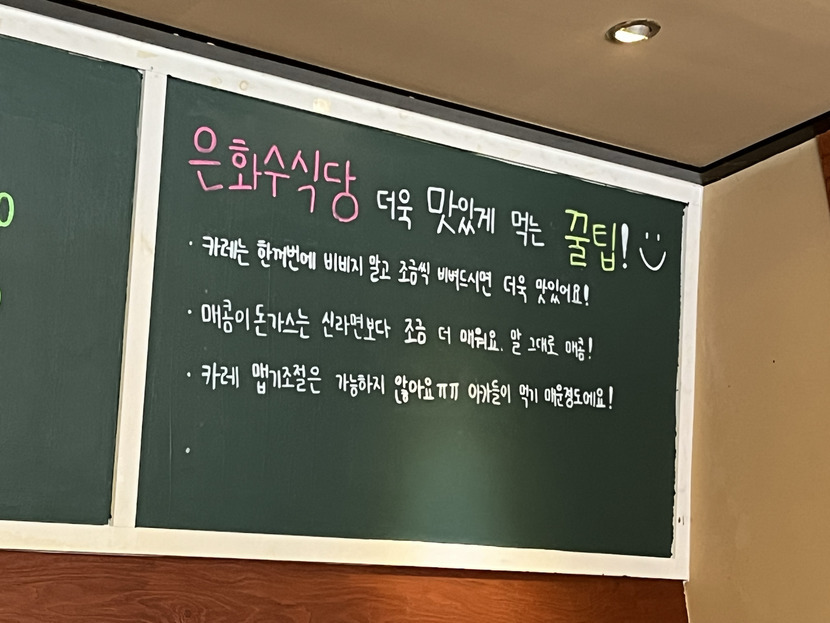 은화수식당 더욱 맛있게 먹는 꿀팁! :)
· 카레는 한꺼번에 비비지 말고 조금씩 비벼드시면 더욱 맛있어요!
· 매콤이돈가스는 신라면보다 조금 더 매워요. 말 그대로 매콤!
· 카레 맵기조절은 가능하지 않아요ㅠㅠ 아가들이 먹기 매운정도에요!
·